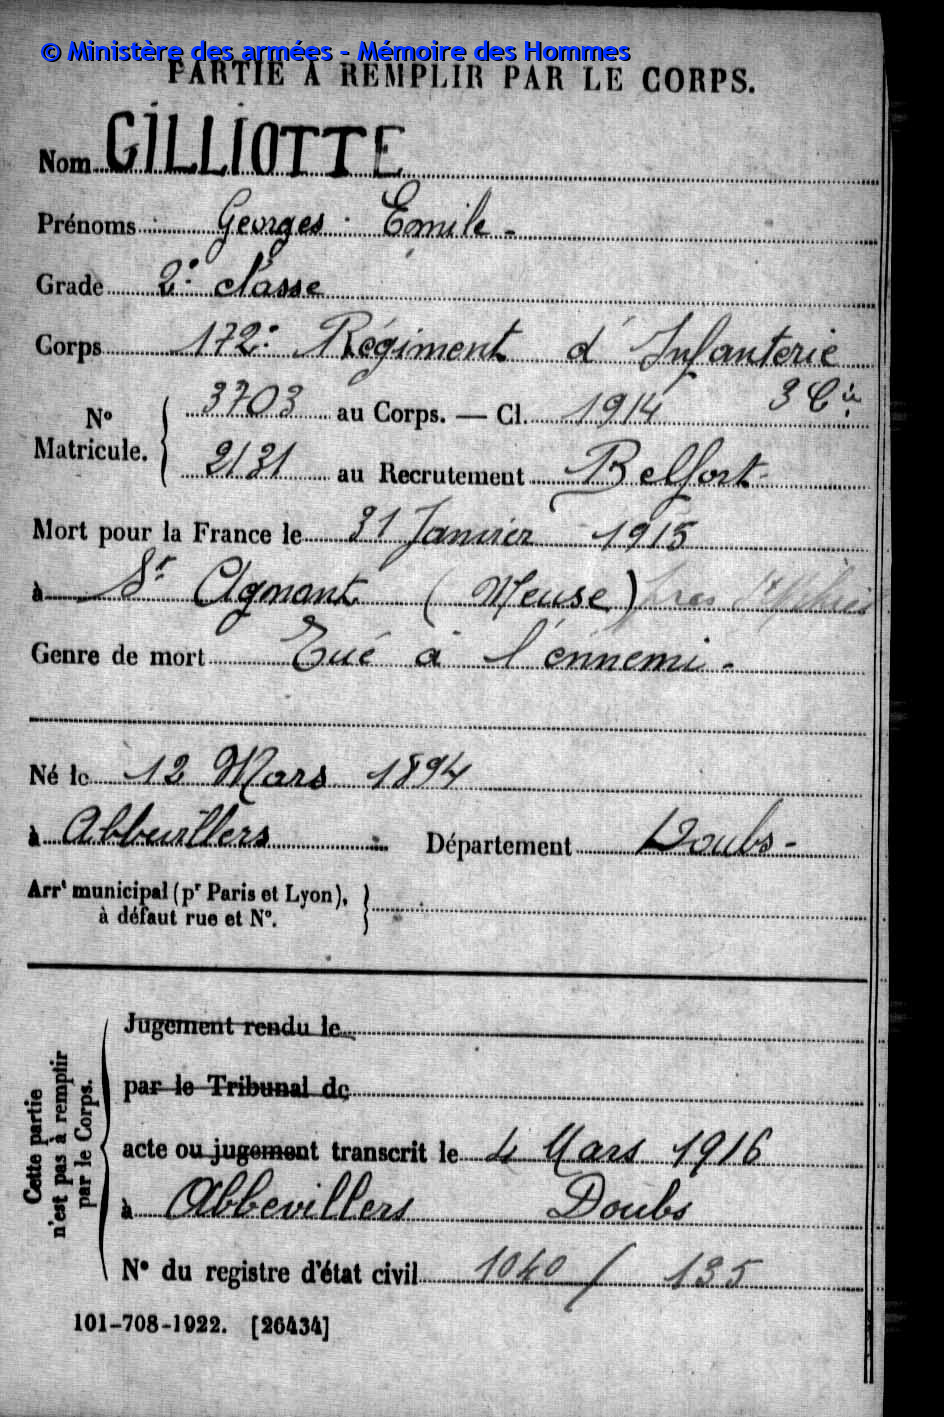 © Ministère des armées - Mémoire des Hommes
PARTIE À REMPLIR PAR LE CORPS.
Nom GILLIOTTE
Prénoms Georges Emile -
Grade 2e classe
Corps 172e Régiment d'Infanterie
No Matricule. 3703 au Corps. — Cl. 1914 3 Cie
2121 au Recrutement Belfort -
Mort pour la France le 31 Janvier 1915
à St Agnant (Meuse) près St
Genre de mort Tué à l'énnemi -
Né le 12 Mars 1894
à Abbevillers Département Doubs -
Arrt municipal (pr Paris et Lyon),
à défaut rue et No.
Cette partie n'est pas à remplir par le Corps.
Jugement rendu le
par le Tribunal de
acte ou jugement transcrit le 4 Mars 1916
à Abbevillers Doubs
No du registre d'état civil 1040 / 135
101-708-1922. [26434]